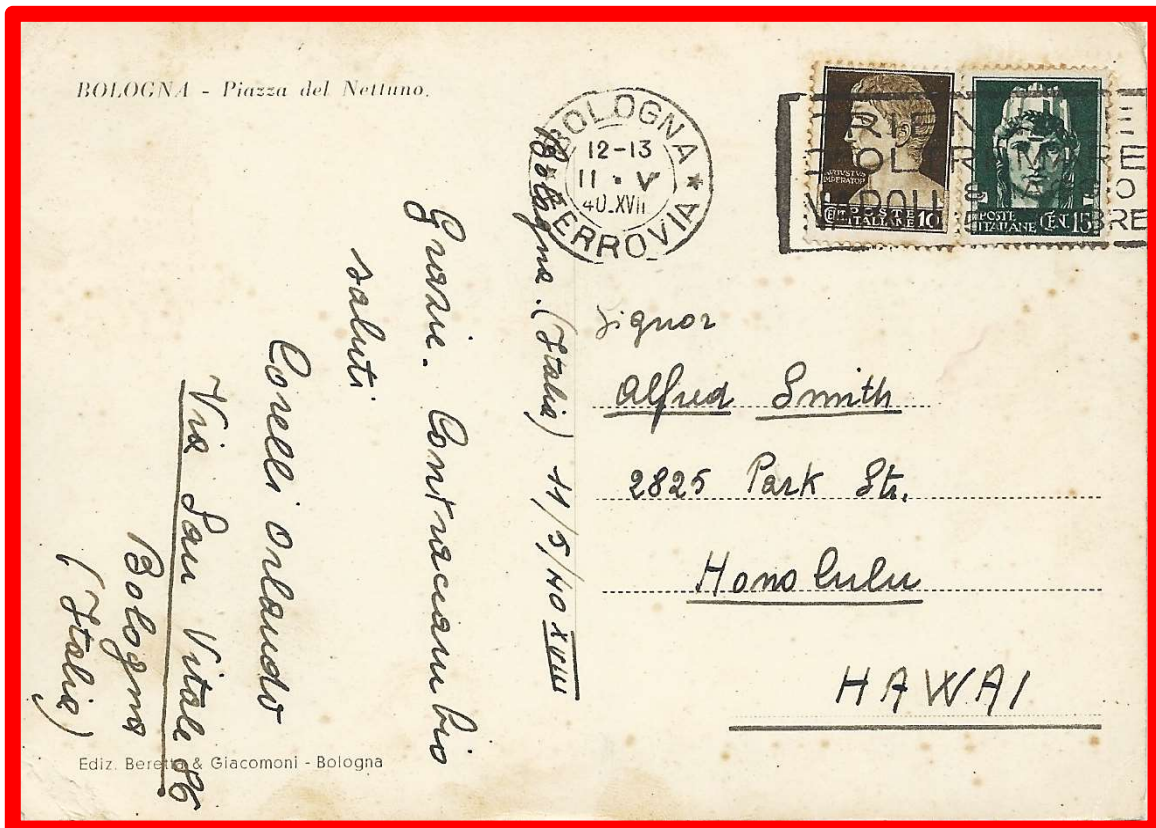 BOLOGNA - Piazza del Nettuno.
BOLOGNA
12-13
11 · V
40.XVII
FERROVIA
AVGVSTVS
IMPERATOR
CENT. 10
POSTE
ITALIANE
POSTE
ITALIANE
CENT. 15
NAPOLI
Bologna. (Italia) 11/5/40 XVIII
Grazie. Contraccambio
saluti
Corelli Orlando
Via San Vitale 86
Bologna
(Italia)
Signor
Alfred Smith
2825 Park Str.
Honolulu
HAWAI
Ediz. Beretta & Giacomoni - Bologna